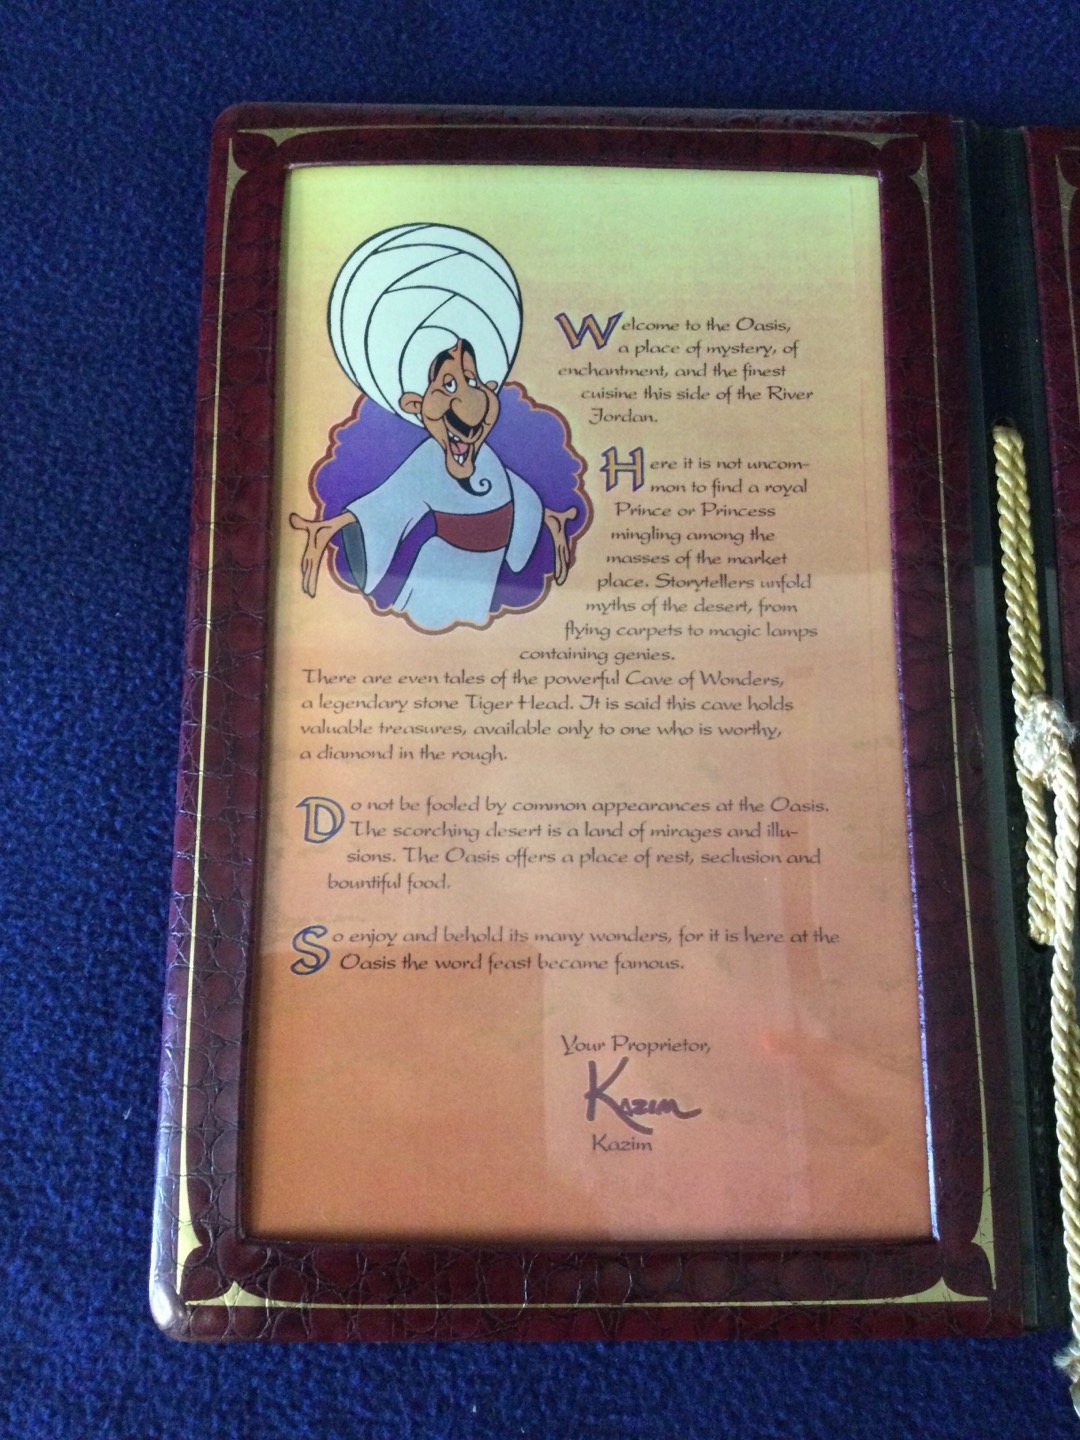 Welcome to the Oasis,
a place of mystery, of
enchantment, and the finest
cuisine this side of the River
Jordan.
Here it is not uncom-
mon to find a royal
Prince or Princess
mingling among the
masses of the market
place. Storytellers unfold
myths of the desert, from
flying carpets to magic lamps
containing genies.
There are even tales of the powerful Cave of Wonders,
a legendary stone Tiger Head. It is said this cave holds
valuable treasures, available only to one who is worthy,
a diamond in the rough.
Do not be fooled by common appearances at the Oasis.
The scorching desert is a land of mirages and illu-
sions. The Oasis offers a place of rest, seclusion and
bountiful food.
So enjoy and behold its many wonders, for it is here at the
Oasis the word feast became famous.
Your Proprietor,
Kazim
Kazim